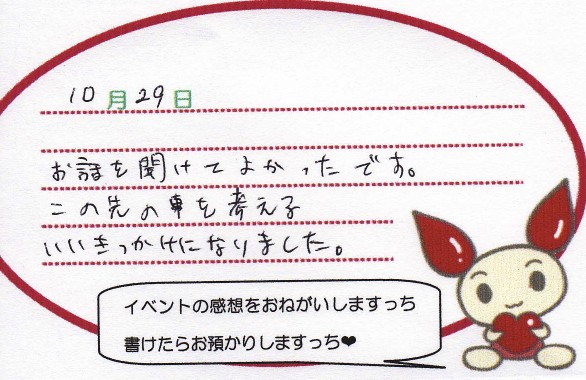 10月29日
お話を聞けてよかったです。
この先の事を考える
いいきっかけになりました。
イベントの感想をおねがいしますっち
書けたらお預かりしますっち❤